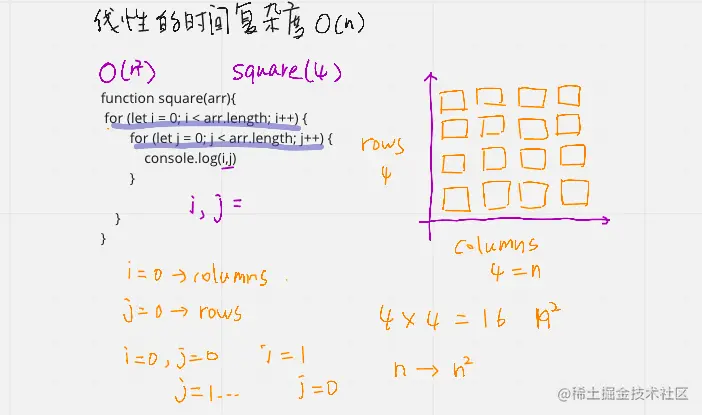 线性的时间复杂度 O(n)
O(n²) square(4)
function square(arr){
for (let i = 0; i < arr.length; i++) {
for (let j = 0; j < arr.length; j++) {
console.log(i,j)
}
}
}
i, j =
rows
4
columns
4 = n
i = 0 → columns
j = 0 → rows
i=0, j=0 i = 1
j = 1 ... j = 0
4 × 4 = 16 n²
n → n²
@稀土掘金技术社区